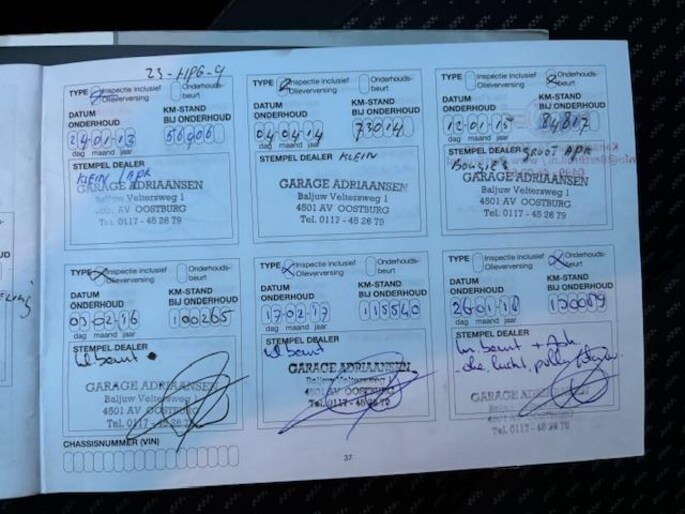 23-HPG-9
TYPE Inspectie inclusief Olieverversing Onderhouds-beurt
DATUM ONDERHOUD KM-STAND BIJ ONDERHOUD
24 01 13 56906
dag maand jaar
STEMPEL DEALER
KLEIN / APK
GARAGE ADRIAANSEN
Baljuw Veltersweg 1
4501 AV OOSTBURG
Tel. 0117 - 45 26 79
TYPE Inspectie inclusief Olieverversing Onderhouds-beurt
DATUM ONDERHOUD KM-STAND BIJ ONDERHOUD
04 04 14 73014
dag maand jaar
STEMPEL DEALER KLEIN
GARAGE ADRIAANSEN
Baljuw Veltersweg 1
4501 AV OOSTBURG
Tel. 0117 - 45 26 79
TYPE Inspectie inclusief Olieverversing Onderhouds-beurt
DATUM ONDERHOUD KM-STAND BIJ ONDERHOUD
12 01 15 84817
dag maand jaar
STEMPEL DEALER GROOT APK
BOUGIES
GARAGE ADRIAANSEN
Baljuw Veltersweg 1
4501 AV OOSTBURG
Tel. 0117 - 45 26 79
TYPE Inspectie inclusief Olieverversing Onderhouds-beurt
DATUM ONDERHOUD KM-STAND BIJ ONDERHOUD
03 02 16 100265
dag maand jaar
STEMPEL DEALER
kl beurt
GARAGE ADRIAANSEN
Baljuw Veltersweg 1
4501 AV OOSTBURG
Tel. 0117 - 45 26 79
TYPE Inspectie inclusief Olieverversing Onderhouds-beurt
DATUM ONDERHOUD KM-STAND BIJ ONDERHOUD
17 02 17 115540
dag maand jaar
STEMPEL DEALER
kl beurt
GARAGE ADRIAANSEN
Baljuw Veltersweg 1
4501 AV OOSTBURG
Tel. 0117 - 45 26 79
TYPE Inspectie inclusief Olieverversing Onderhouds-beurt
DATUM ONDERHOUD KM-STAND BIJ ONDERHOUD
26 01 18 130089
dag maand jaar
STEMPEL DEALER
beurt + Apk
olie, lucht, pollen
GARAGE ADRIAANSEN
Baljuw Veltersweg 1
4501 AV OOSTBURG
Tel. 0117 - 45 26 79
CHASSISNUMMER (VIN)
37